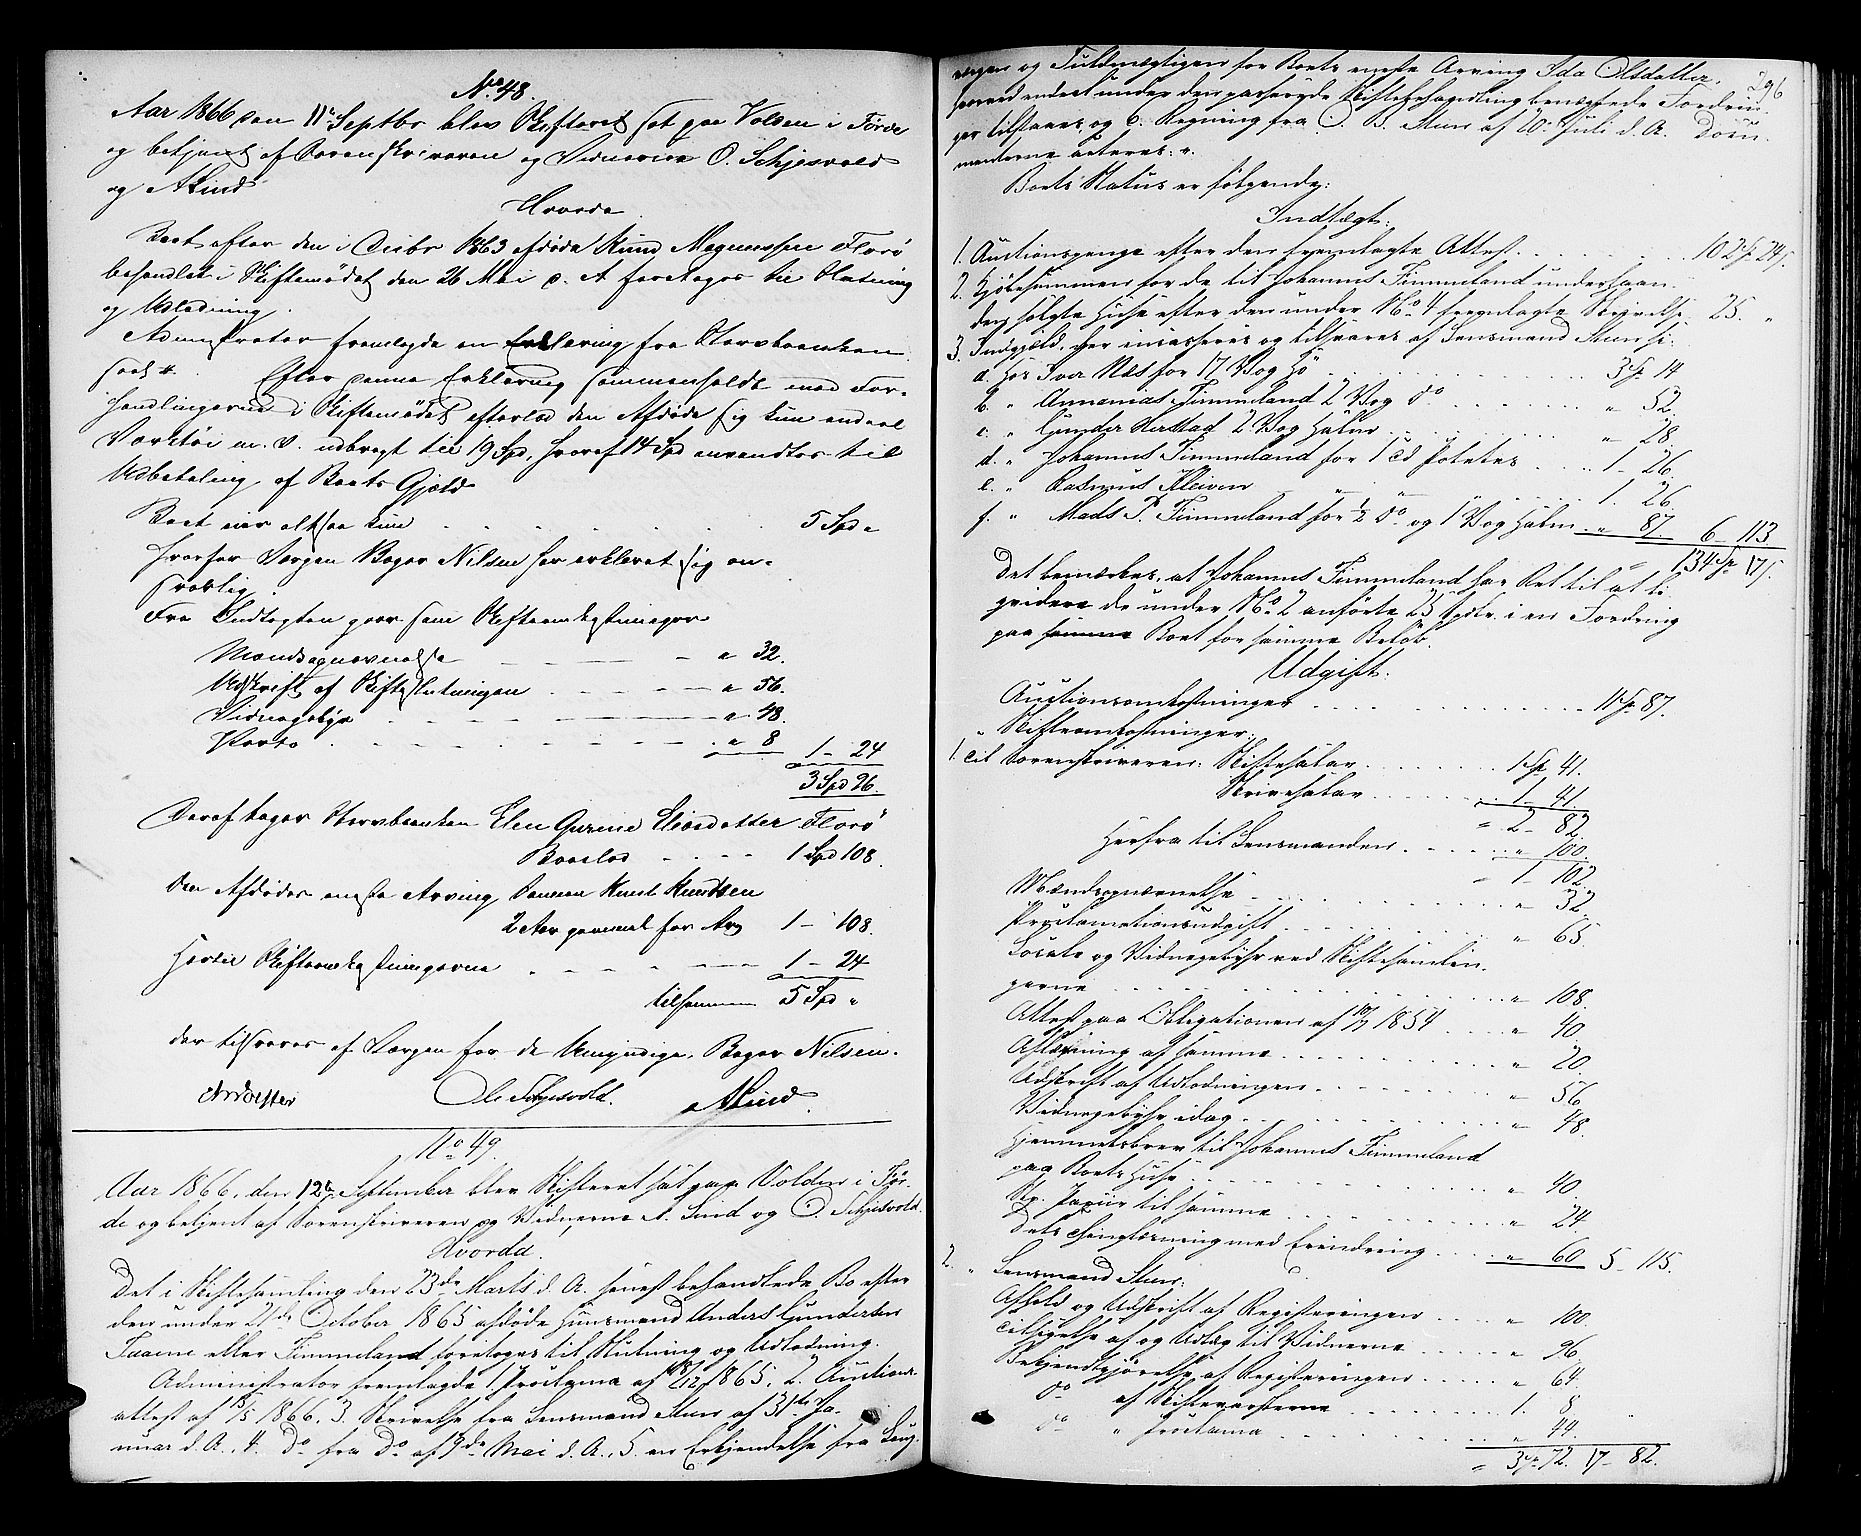 No 48.
Aar 1866 den 11te Septbr blev Skifteret sat paa Volden i Förde
og betjent af Sorenskriveren og Vidnerne O. Schjesvold
og A Lind
Hvorda
Boet efter den i Decbr 1863 afdöde Knud Magnussen Florö
behandlet i Skiftemödet den 26 Mai d. A foretages til Slutning
og Udlodning.
Administrator fremlagde en Erklæring fra Stervboenken
saal. Efter denne Erklæring sammenholdt med For-
handlingerne i Skiftemödet efterlod den Afdöde sig kun endeel
Værktöi m. v. udbragt til 19 Spd, hvoraf 14 Spd anvendtes til
Udbetaling af Boets Gjæld
Boet eier altsaa kun 5 Spd "
hvorfor Værgen Roger Nilsen har erklæret sig an-
svarlig
Fra Indtægten gaar som Skifteomkostninger
Mændsopnævnelse " 32.
Udskrift af Skifteslutningen " 56.
Vidnegebyr " 48.
Porto " 8 1 - 24
3 Spd 96.
Deraf tager Stervboenken Elen Gurine Eliasdatter Florö
Boeslod 1 Spd 108.
Den Afdödes eneste Arving Sönnen Knud Knudsen
2 Aar gammel for Arv 1 - 108.
Hertil Skifteomkostningerne 1 - 24
tilsammen 5 Spd "
der tilsvares af Værgen for de Umyndige, Roger Nilsen.
Ole Schjesvold. A Lind
No 49.
Aar 1866, den 12te September blev Skifteret sat paa Volden i För-
de og betjent af Sorenskriveren og Vidnerne A. Lind og O Schjesvold.
Hvorda.
Det i Skiftesamling den 23de Marts d. A. senest behandlede Bo efter
den under 21de October 1865 afdöde Huusmand Anders Gundersen
eller Timmeland foretages til Slutning og Udlodning.
Administrator fremlagde 1, Proclama af 18/12 1865, 2. Auctions-
attest af 15/5 1866, 3. Skrivelse fra Lensmand Stuer af 31te Ja-
nuar d. A., 4. Do fra Do af 9de Mai d. A., 5. en Erkjendelse fra Laug-
296
værgen og Fuldmægtigen for Boets eneste Arving Ida Olsdatter,
hvorved endeel under den passerede Skiftebehandling benægtede Fordrin-
ger tilstaaes og 6. Regning fra B. Stuer af 20. Juli d. A. Docu-
menterne acteres: ".
Boets Status er fölgende:
Indtægt:
1. Auctionspenge efter den fremlagte Attest 102 Sp 24 s.
2. Kjöbesummen for de til Johannes Timmeland underhaan-
den solgte Huse efter den under No 4 fremlagte Skrivelse 25. "
3. Indgjæld, der incasseres og tilsvares af Lensmand Stuer:
a. Hos Iver Næs for 17 Vog Hö 3 Sp 14
b. " Annanias Timmeland 2 Vog do " 52.
c. " Gunder 2 Vog Halm " 28.
d. " Johannes Timmeland for 1 Td Poteter 1 - 26.
e. " Rasmus Kleiven " " 1. 26.
f. " Mads P. Timmeland for ½ do og 1 Vog Halm " 87. 6 - 113.
134 Sp 17 s.
Det bemærkes, at Johannes Timmeland har Ret til at li-
qvidere de under No 2 anförte 25 Spdlr. i en Fordring
paa samme Boet for samme Belöb.
Udgift.
Auctionsomkostninger 11 Sp 87.
" Skifteomkostninger:
1. Til Sorenskriveren: Skiftesalær 1 Sp 41.
Skrivesalær 1 - 41.
" 2 - 82.
Herfra til Lensmanden " 100.
" 1 - 102.
Mændsopnævnelse " 32.
Proclamationsudgift " 65.
Locale og Vidnegebyhr ved Skiftesamlin-
gerne " 108.
Attest paa Obligationen af 1854 " 40.
Aflæsning af samme " 20.
Udskrift af Udlodningen " 56
Vidnegebyhr idag " 48.
Hjemmelsbrev til Johannes Timmeland
paa Boets Huse " 40.
St. Papiir til samme " 24
Dets Thinglæsning med Erindring " 60 5 - 115.
2. " Lensmand Stuer:
Afhold og Udskrift af Registeringen " 100.
Tilsigelse af og Udlæg til Vidnerne " 96
Bekjendtgjörelse af Registeringen " 64.
Do af Skiftevarslerne 1. 8
Do " Proclama " 44.
" 3 Sp 72. 17 - 82.